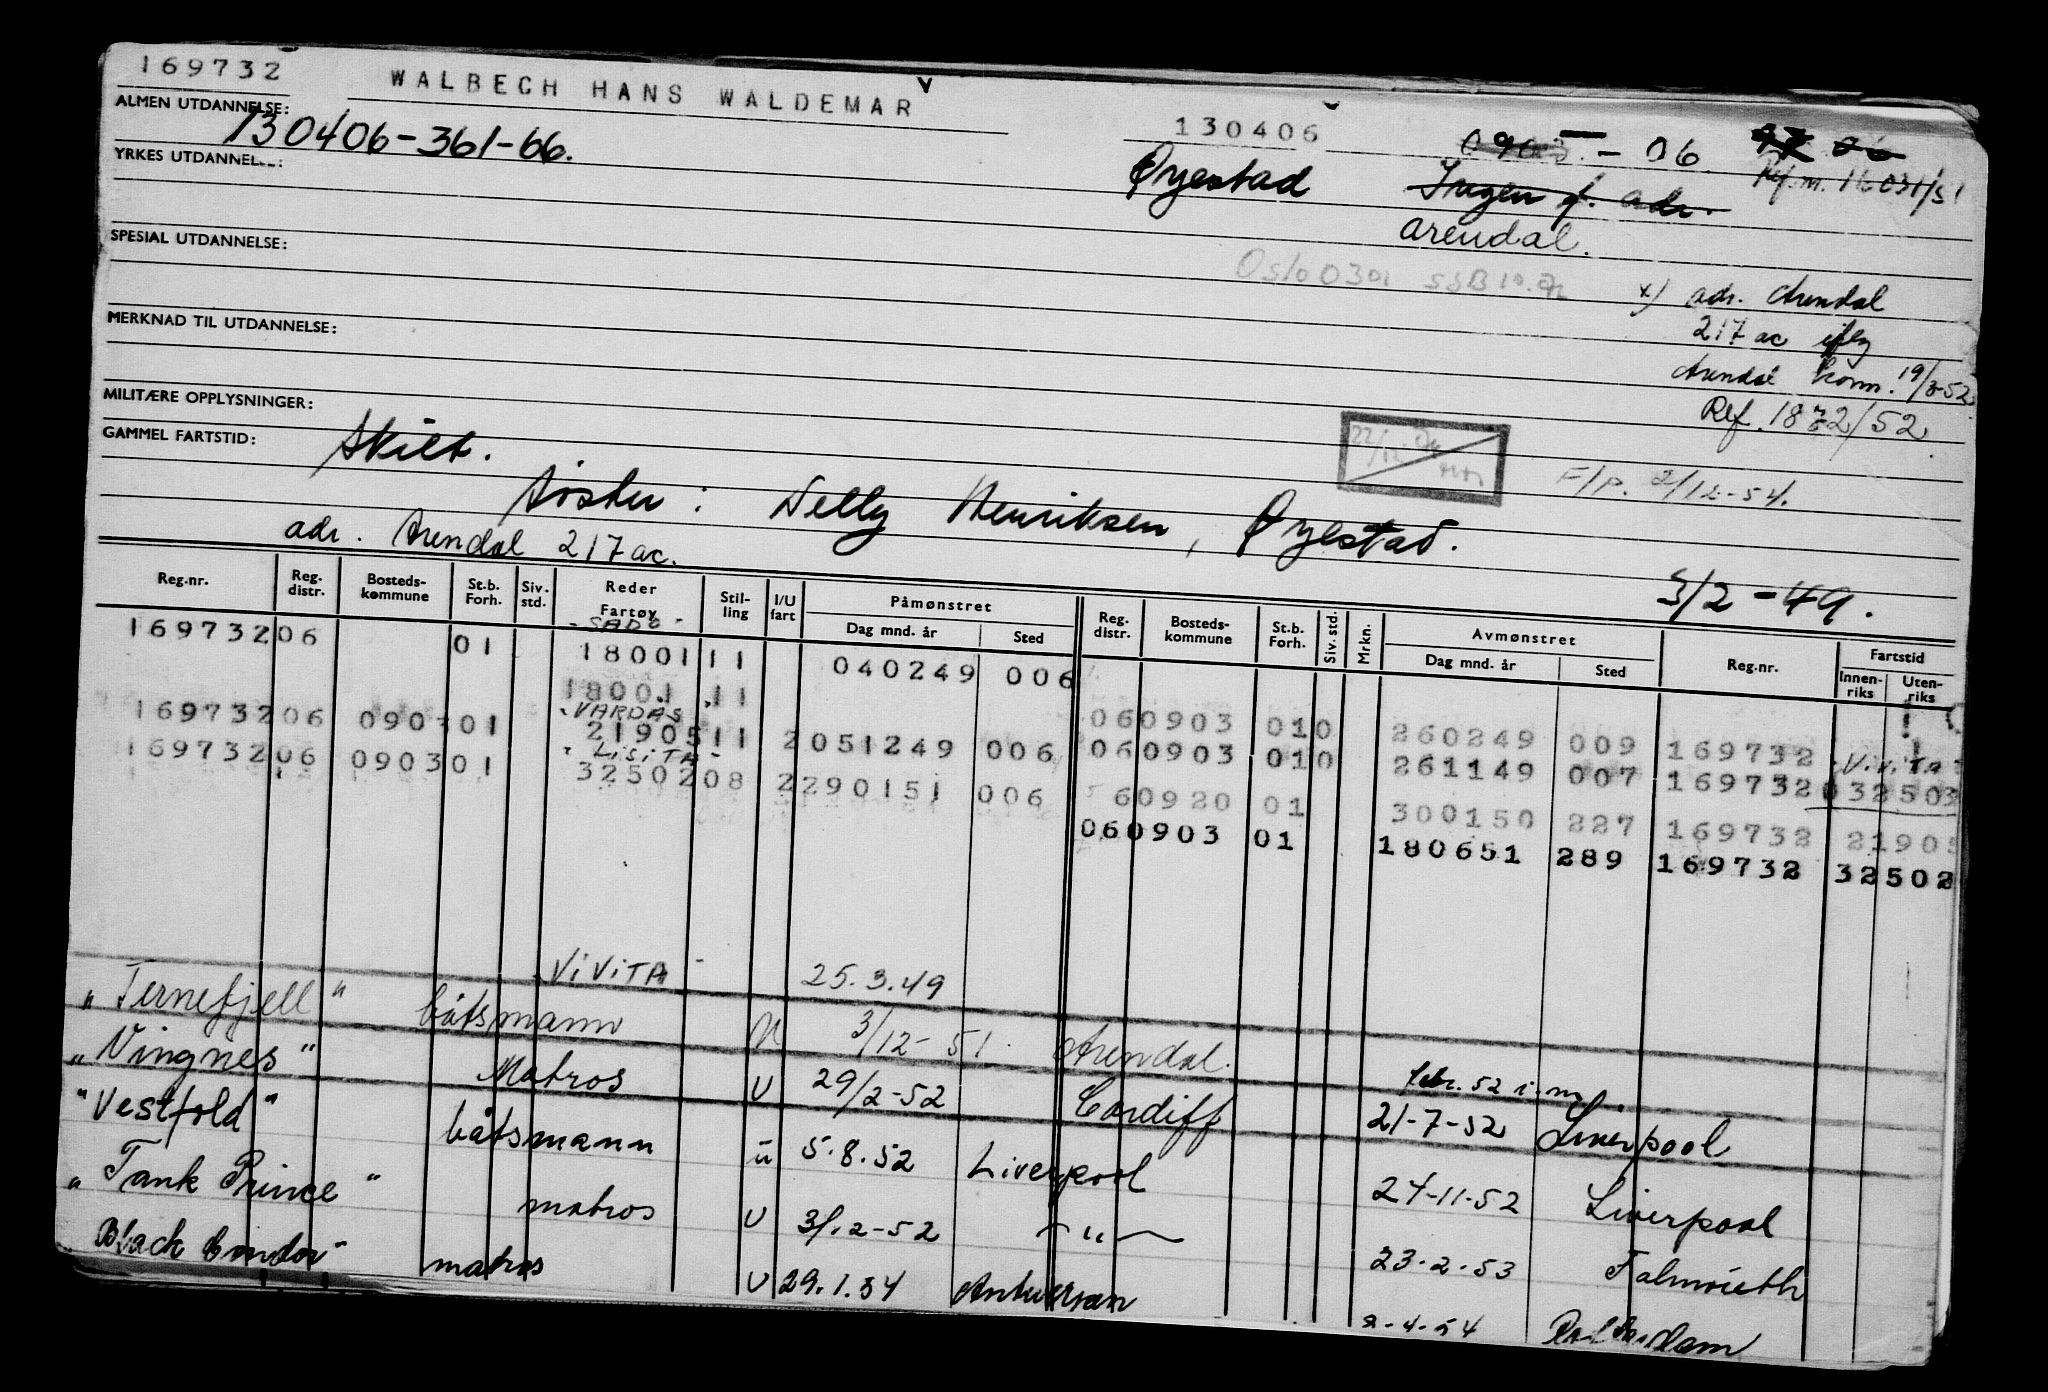 169732 WALBECH HANS WALDEMAR
ALMEN UTDANNELSE:
130406-361-66.
130406 - 06.
YRKES UTDANNELSE:
Øyestad Ingen f. adr. Ref. m.
Arendal.
SPESIAL UTDANNELSE:
Oslo 0301
x) adr. Arendal
217 ac
MERKNAD TIL UTDANNELSE:
Arendal komm. 19/3-52
Ref. 1872/52
MILITÆRE OPPLYSNINGER:
GAMMEL FARTSTID:
Skilt.
F/P. 2/12-54.
Søster: Nelly Henriksen, Øyestad.
adr. Arendal 217 ac.
3/2-49.
Reg.nr. Reg. distr. Bosteds-kommune St.b. Forh. Siv. std. Reder Fartøy Stil-ling I/U fart Påmønstret Dag mnd. år Sted Reg. distr. Bosteds-kommune St.b. Forh. Siv. std. Mrkn. Avmønstret Dag mnd. år Sted Reg.nr. Fartstid Innen-riks Uten-riks
- SADO -
169732 06 01 18001 11 040249 006
18001 11 060903 01 0 260249 009 169732
- VARDAS
- ViViTA -
169732 06 0903 01 21905 11 2 051249 006 060903 01 0 261149 007 169732 032503
- LiSiTA -
169732 06 0903 01 32502 08 2 290151 006 60920 01 300150 227 169732 21905
060903 01 180651 289 169732 32502
- ViViTA - 25.3.49
"Ternefjell" båtsmann U 3/12-51. Arendal. febr. 52 i.m.
"Vingnes" Matros U 29/2-52 Cardiff 21-7-52 Liverpool
"Vestfold" båtsmann u 5.8.52 Liverpool 24-11-52 Liverpool
"Tank Prince" matros U 3/12-52 — " — 23-2-53 Falmouth
"Black Condor" matros U 29.1.54 Antwerpen -4-54 Rotterdam